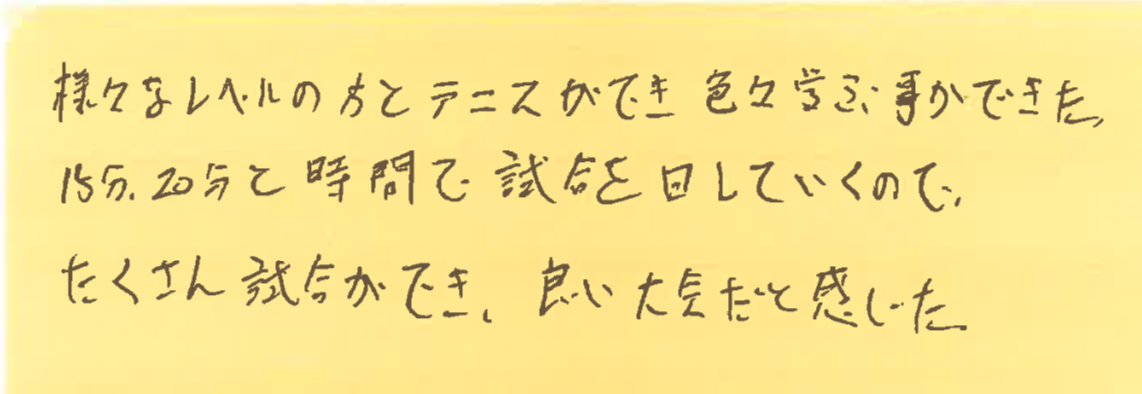 様々なレベルの方とテニスができ 色々学ぶ事ができた。
15分、20分と時間で試合を回していくので、
たくさん試合ができ、良い大会だと感じた。